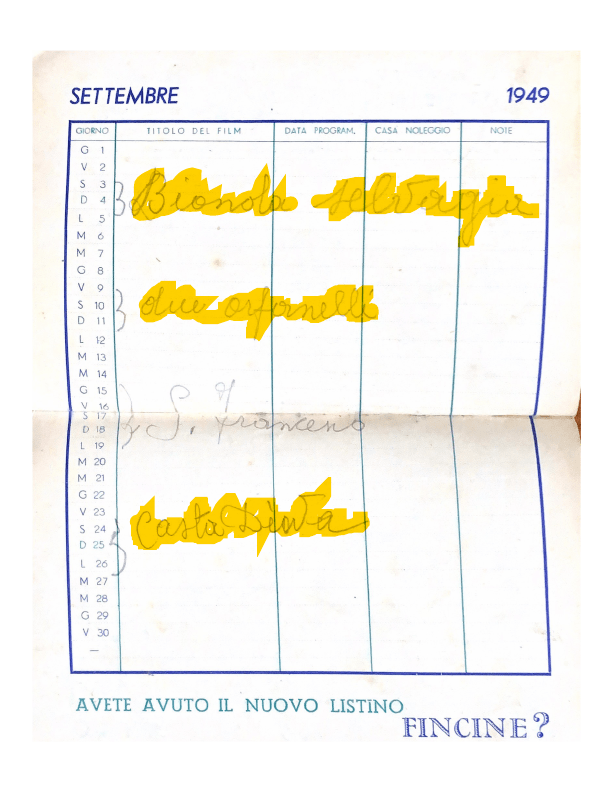 SETTEMBRE 1949
GIORNO TITOLO DEL FILM DATA PROGRAM. CASA NOLEGGIO NOTE
G 1
V 2
S 3
D 4 Bionda selvagia
L 5
M 6
M 7
G 8
V 9
S 10 due orfanelli
D 11
L 12
M 13
M 14
G 15
V 16
S 17
D 18 S. Francesco
L 19
M 20
M 21
G 22
V 23
S 24 Casta Diva
D 25
L 26
M 27
M 28
G 29
V 30
—
AVETE AVUTO IL NUOVO LISTINO
FINCINE?